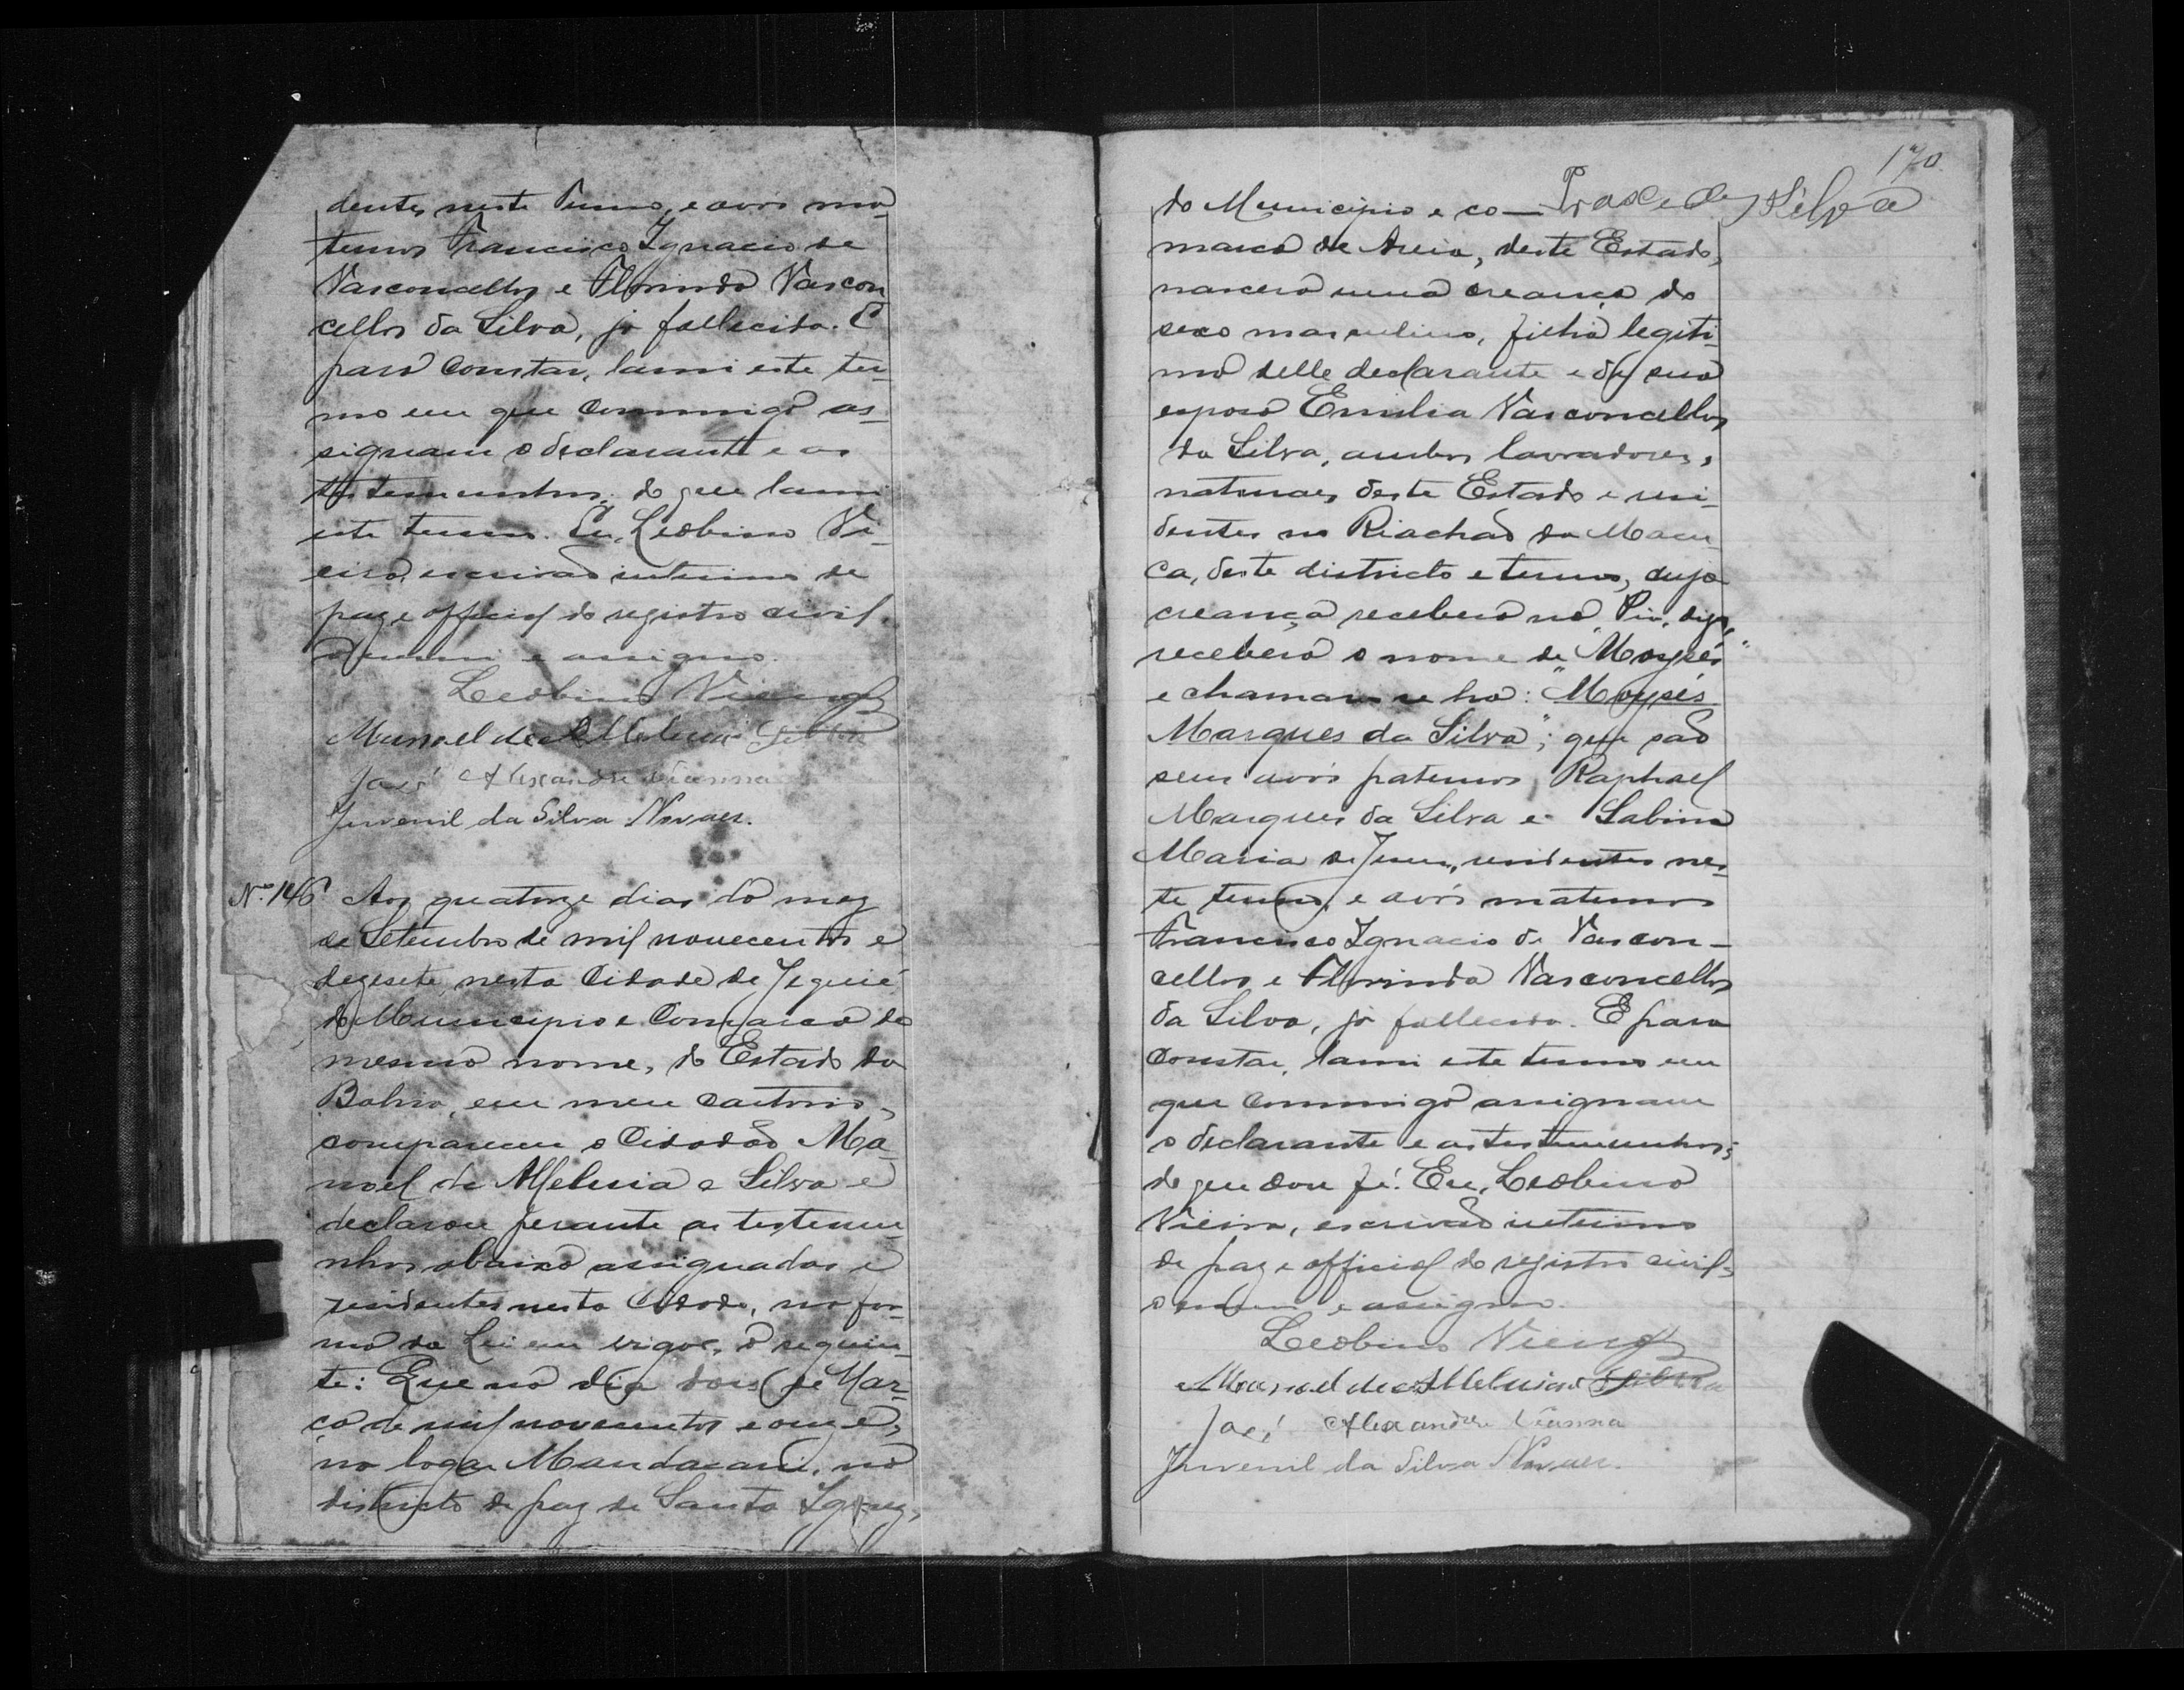 dentes neste Termo, e avós ma-
ternos Francisco Ignacio de
Vasconcellos e Florinda Vascon
cellos da Silva, já fallecida. E
para constar, lavrei este ter-
mo em que commigo as-
signam o declarante e as
testemunhas, do que lavrei
este termo. Eu, Leobino Vi-
eira, escrivão interino de
paz e official do registro civil,
o escrevi e assigno.
Leobino Vieira
Manoel de Alleluia Silva
José Alexandre Vianna
Juvenil da Silva Novaes.
Nº 146 Aos quatorze dias do mez
de Setembro de mil novecentos e
dezesete, nesta Cidade de Jequié
do Municipio e Comarca do
mesmo nome, do Estado da
Bahia, em meu cartorio,
compareceu o Cidadão Ma-
noel de Alleluia e Silva e
declarou perante as testemu-
nhas abaixo assignadas e
residentes nesta Cidade, na for-
ma da Lei em vigor, o seguin-
te: Que no dia dois de Mar-
ço de mil novecentos e onze,
no logar Mandacarú, no
districto de paz de Santa Ignez,
170.
do Municipio e co- Praxedes Silva
marca de Areia, deste Estado,
nascera uma creança do
sexo masculino, filha legiti-
ma delle declarante e de sua
esposa Emilia Vasconcellos
da Silva, ambos lavradores,
naturaes deste Estado e resi-
dentes no Riachão da Macu-
ca, deste districto e termo, cuja
creança receberá na Pia, digo,
receberá o nome de "Moysés"
e chamar-se ha: "Moysés
Marques da Silva"; que são
seus avós paternos, Raphael
Marques da Silva e Sabina
Maria de Jesus, residentes nes-
te termo, e avós maternos
Francisco Ignacio de Vascon-
cellos e Florinda Vasconcellos
da Silva, já fallecida. E para
constar, lavrei este termo em
que commigo assignam
o declarante e as testemunhas;
do que dou fé. Eu, Leobino
Vieira, escrivão interino
de paz e official do registro civil,
o escrevi e assigno.
Leobino Vieira
Manoel de Alleluia Silva
José Alexandre Vianna
Juvenil da Silva Novaes.